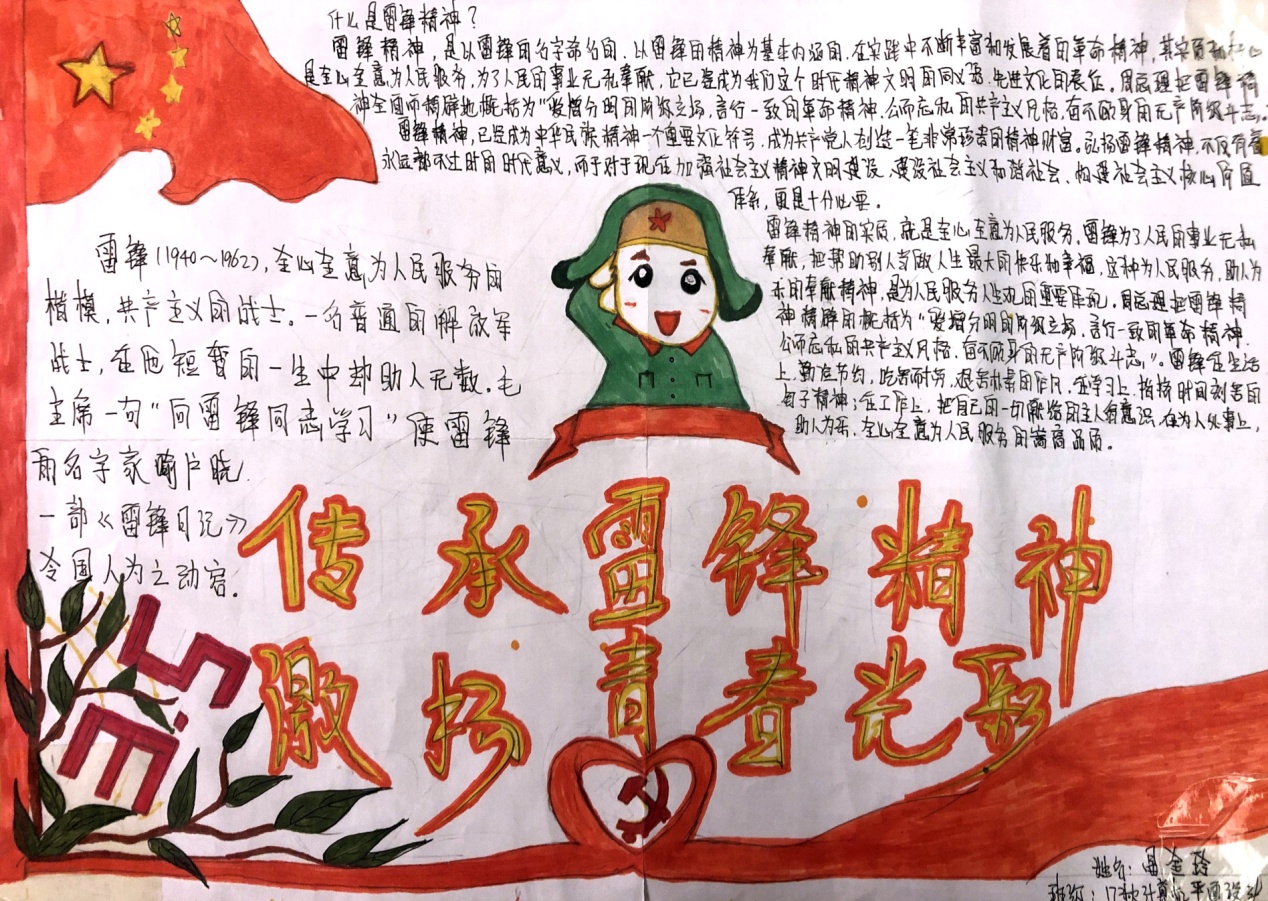 什么是雷锋精神？
雷锋精神，是以雷锋的名字命名的，以雷锋的精神为基本内涵的，在实践中不断丰富和发展着的革命精神，其实质和核心
是全心全意为人民服务，为了人民的事业无私奉献，它已经成为我们这个时代精神文明的同义语、先进文化的表征。周总理把雷锋精
神全面而精辟地概括为“爱憎分明的阶级立场，言行一致的革命精神，公而忘私的共产主义风格，奋不顾身的无产阶级斗志。
雷锋精神，已经成为中华民族精神一个重要文化符号，成为共产党人创造一笔非常珍贵的精神财富。弘扬雷锋精神，不仅有着
永远都不过时的时代意义，而于对于现在加强社会主义精神文明建设、建设社会主义和谐社会、构建社会主义核心价值
体系，更是十分必要。
雷锋精神的实质，就是全心全意为人民服务，雷锋为了人民的事业无私
奉献，把帮助别人当做人生最大的快乐和幸福，这种为人民服务，助人为
乐的奉献精神，是为人民服务人生观的重要体现。周总理把雷锋精
神精辟的概括为“爱憎分明的阶级立场，言行一致的革命精神，
公而忘私的共产主义风格，奋不顾身的无产阶级斗志，”。雷锋在生活
上，勤俭节约，吃苦耐劳，艰苦朴素的作风，在学习上，挤挤时间刻苦的
钉子精神；在工作上，把自己的一切献给的主人翁意识，在为人处事上，
助人为乐、全心全意为人民服务的崇高品质。
雷锋(1940～1962)，全心全意为人民服务的
楷模，共产主义的战士。一名普通的解放军
战士，在他短暂的一生中却助人无数。毛
主席一句“向雷锋同志学习”使雷锋
的名字家喻户晓，
一部《雷锋日记》
令国人为之动容。
传承雷锋精神
激扬青春光彩
3.5
姓名：金玲
班级：17秋计算机平面设计